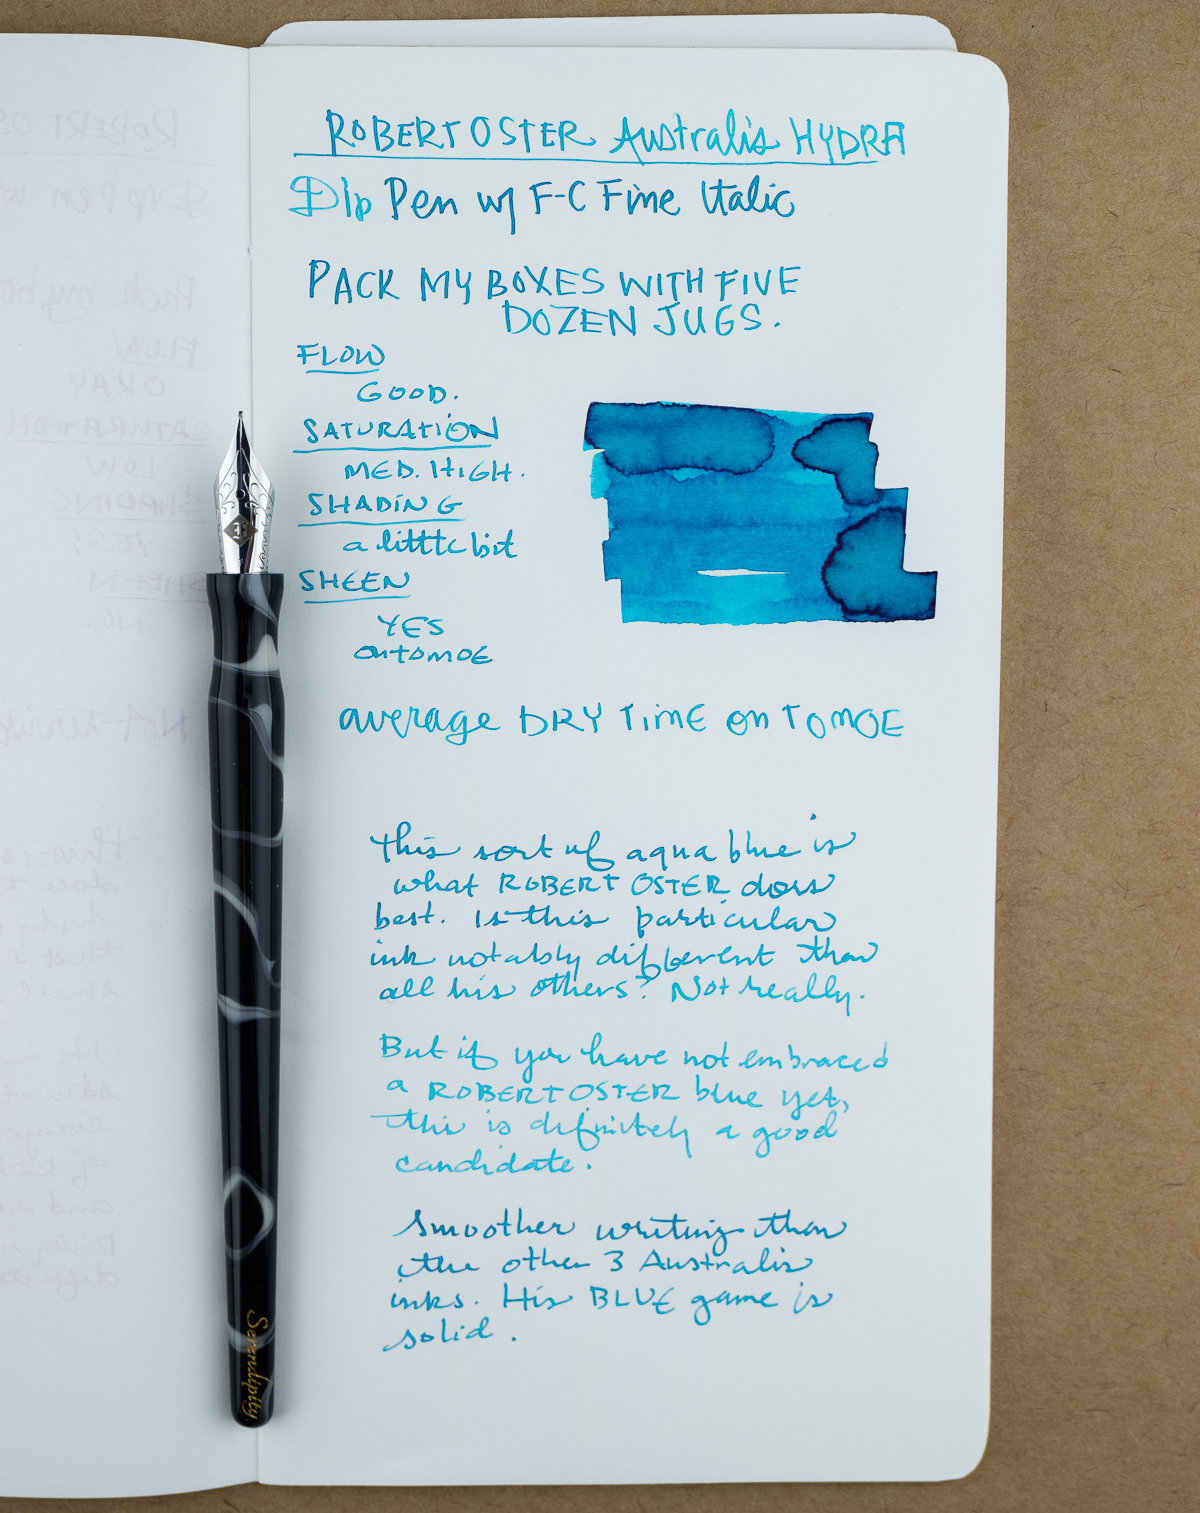 ROBERT OSTER Australis HYDRA
Dip Pen w/ F-C Fine Italic
PACK MY BOXES WITH FIVE
DOZEN JUGS.
FLOW
GOOD.
SATURATION
MED. HIGH.
SHADING
a little bit
SHEEN
YES
on TOMOE
average DRY TIME on TOMOE
This sort of aqua blue is
what ROBERT OSTER does
best. Is this particular
ink notably different than
all his others? Not really.
But if you have not embraced
a ROBERT OSTER blue yet,
this is definitely a good
candidate.
Smoother writing than
the other 3 Australis
inks. His BLUE game is
solid.
Serendipity